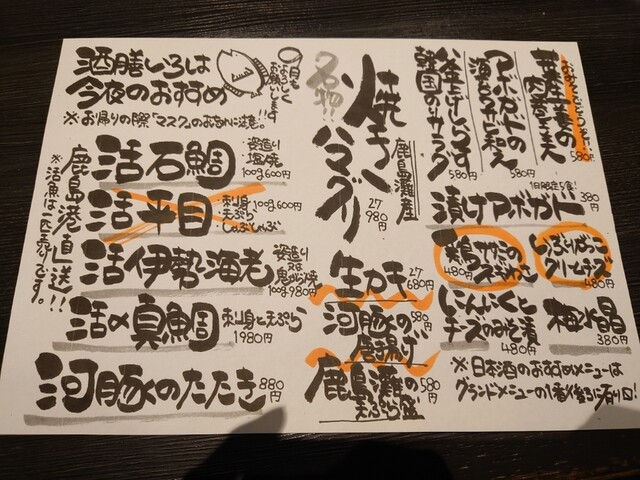 酒膳しろは
今夜のおすすめ
今月も
よろしく
お願いします
※お帰りの際「マスク」のお忘れに注意!!
活石鯛 姿造り 塩焼 100g600円
活平目 刺身 100g600円
・天ぷら
・しゃぶしゃぶ
活伊勢海老 姿造り
又は
鬼がら焼
100g980円
活〆真鯛 刺身と天ぷら
1980円
河豚のたたき 880円
鹿島港直送!!
※活魚は一匹売りです。
名物!!
焼きハマグリ
鹿島灘産
2ケ
980円
生カキ 2ケ
680円
河豚の唐揚げ 580円
鹿島灘の
天ぷら盛 580円
肉巻き天 580円
アボカドの
海とろろ和え 580円
釜上げしらす
韓国のりサラダ 580円
1日限定5食!
漬けアボカド 380円
クリームチーズ 480円
鶏ササミの
480円
にんにくと
チーズのみそ漬 480円
梅水晶 380円
※日本酒のおすすめメニューは
グランドメニューの1番後ろに有り〼!